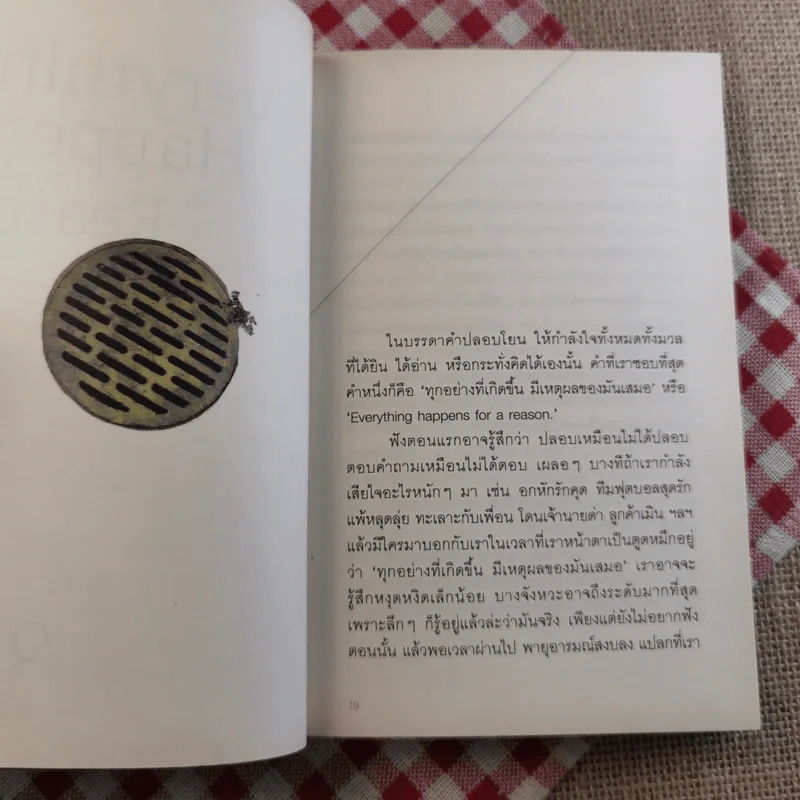 ในบรรดาคำปลอบโยน ให้กำลังใจทั้งหมดทั้งมวล
ที่ได้ยิน ได้อ่าน หรือกระทั่งคิดได้เองนั้น คำที่เราชอบที่สุด
คำหนึ่งก็คือ ‘ทุกอย่างที่เกิดขึ้น มีเหตุผลของมันเสมอ’ หรือ
‘Everything happens for a reason.’
ฟังตอนแรกอาจรู้สึกว่า ปลอบเหมือนไม่ได้ปลอบ
ตอบคำถามเหมือนไม่ได้ตอบ เผลอๆ บางทีถ้าเรากำลัง
เสียใจอะไรหนักๆ มา เช่น อกหักรักคุด ทีมฟุตบอลสุดรัก
แพ้หลุดลุ่ย ทะเลาะกับเพื่อน โดนเจ้านายด่า ลูกค้าเมิน ฯลฯ
แล้วมีใครมาบอกกับเราในเวลาที่เราหน้าตาเป็นตูดหมึกอยู่
ว่า ‘ทุกอย่างที่เกิดขึ้น มีเหตุผลของมันเสมอ’ เราอาจจะ
รู้สึกหงุดหงิดเล็กน้อย บางจังหวะอาจถึงระดับมากที่สุด
เพราะลึกๆ ก็รู้อยู่แล้วล่ะว่ามันจริง เพียงแต่ยังไม่อยากฟัง
ตอนนั้น แล้วพอเวลาผ่านไป พายุอารมณ์สงบลง แปลกที่เรา
19